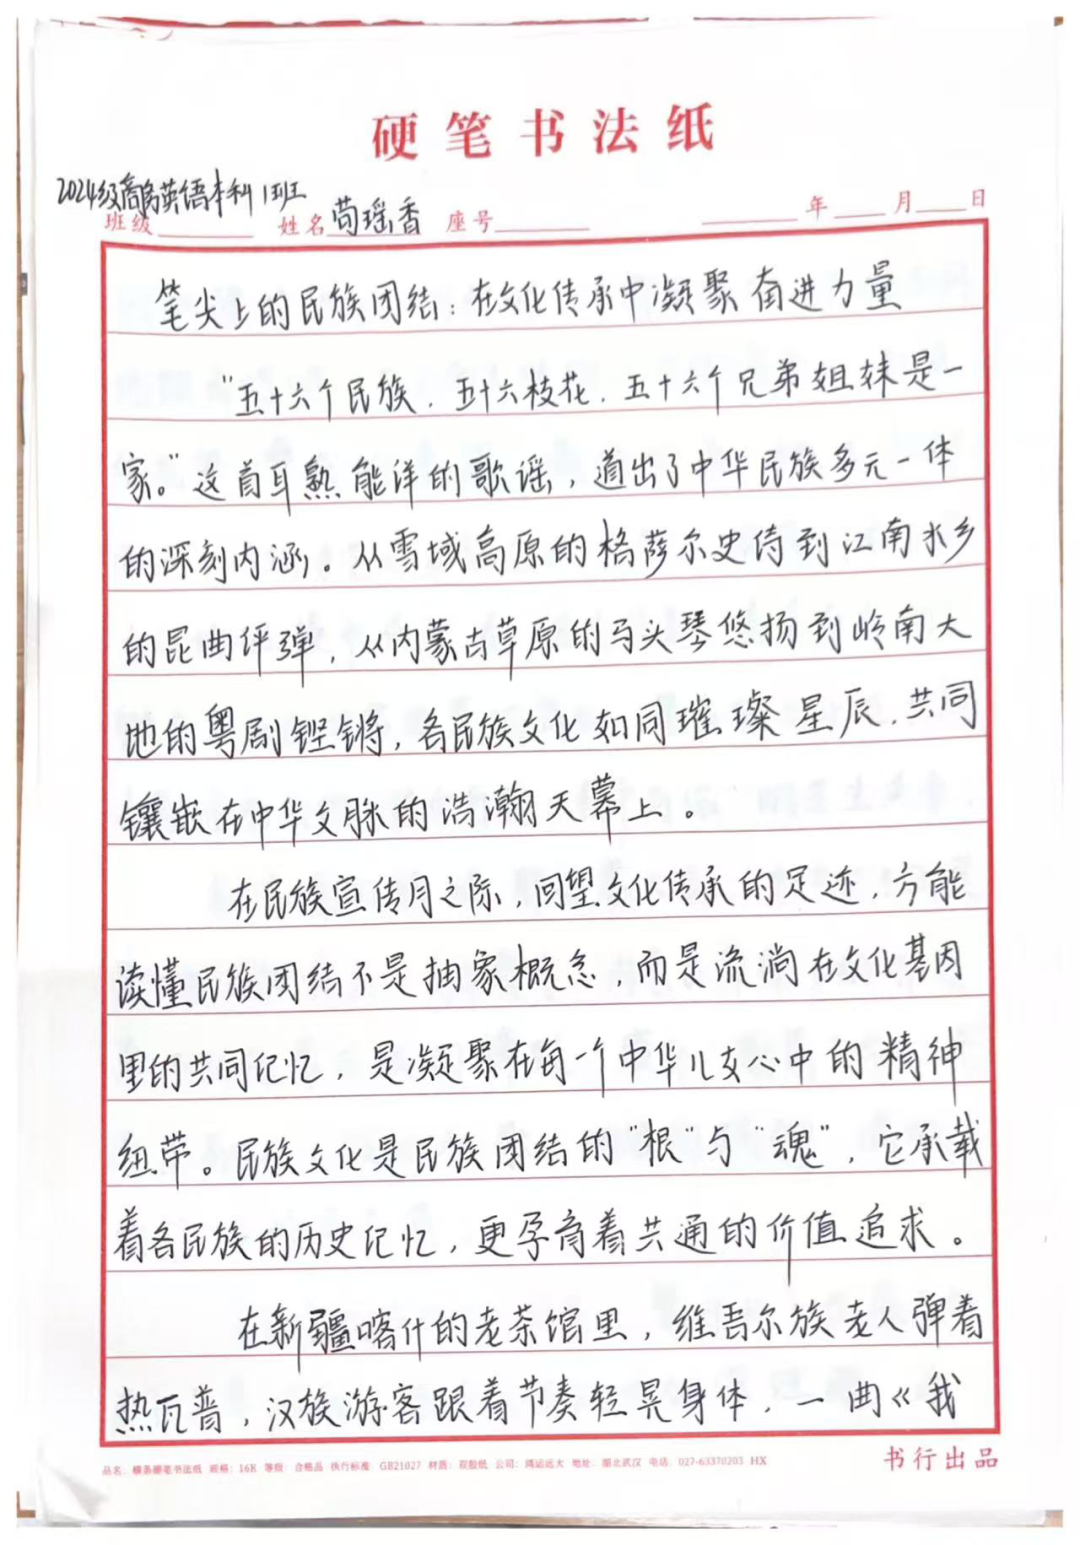 硬笔书法纸
2024级商务英语本科1班
班级 姓名 苟瑶香 座号 年 月 日
笔尖上的民族团结：在文化传承中凝聚奋进力量
“五十六个民族，五十六枝花，五十六个兄弟姐妹是一
家。”这首耳熟能详的歌谣，道出了中华民族多元一体
的深刻内涵。从雪域高原的格萨尔史诗到江南水乡
的昆曲评弹，从内蒙古草原的马头琴悠扬到岭南大
地的粤剧铿锵，各民族文化如同璀璨星辰，共同
镶嵌在中华文脉的浩瀚天幕上。
在民族宣传月之际，回望文化传承的足迹，方能
读懂民族团结不是抽象概念，而是流淌在文化基因
里的共同记忆，是凝聚在每一个中华儿女心中的精神
纽带。民族文化是民族团结的“根”与“魂”，它承载
着各民族的历史记忆，更孕育着共通的价值追求。
在新疆喀什的老茶馆里，维吾尔族老人弹着
热瓦普，汉族游客跟着节奏轻晃身体，一曲《我
品名：横条硬笔书法纸 规格：16K 等级：合格品 执行标准：GB21027 材质：双胶纸 公司：鸿运远大 地址：湖北武汉 电话：027-63370203 HX
书行出品